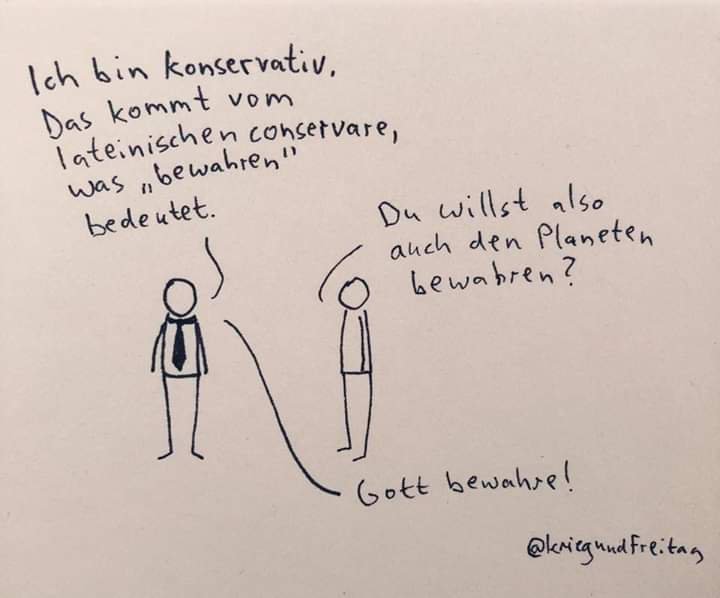 Ich bin konservativ.
Das kommt vom
lateinischen conservare,
was „bewahren"
bedeutet.
Du willst also
auch den Planeten
bewahren?
Gott bewahre!
@kriegundfreitag